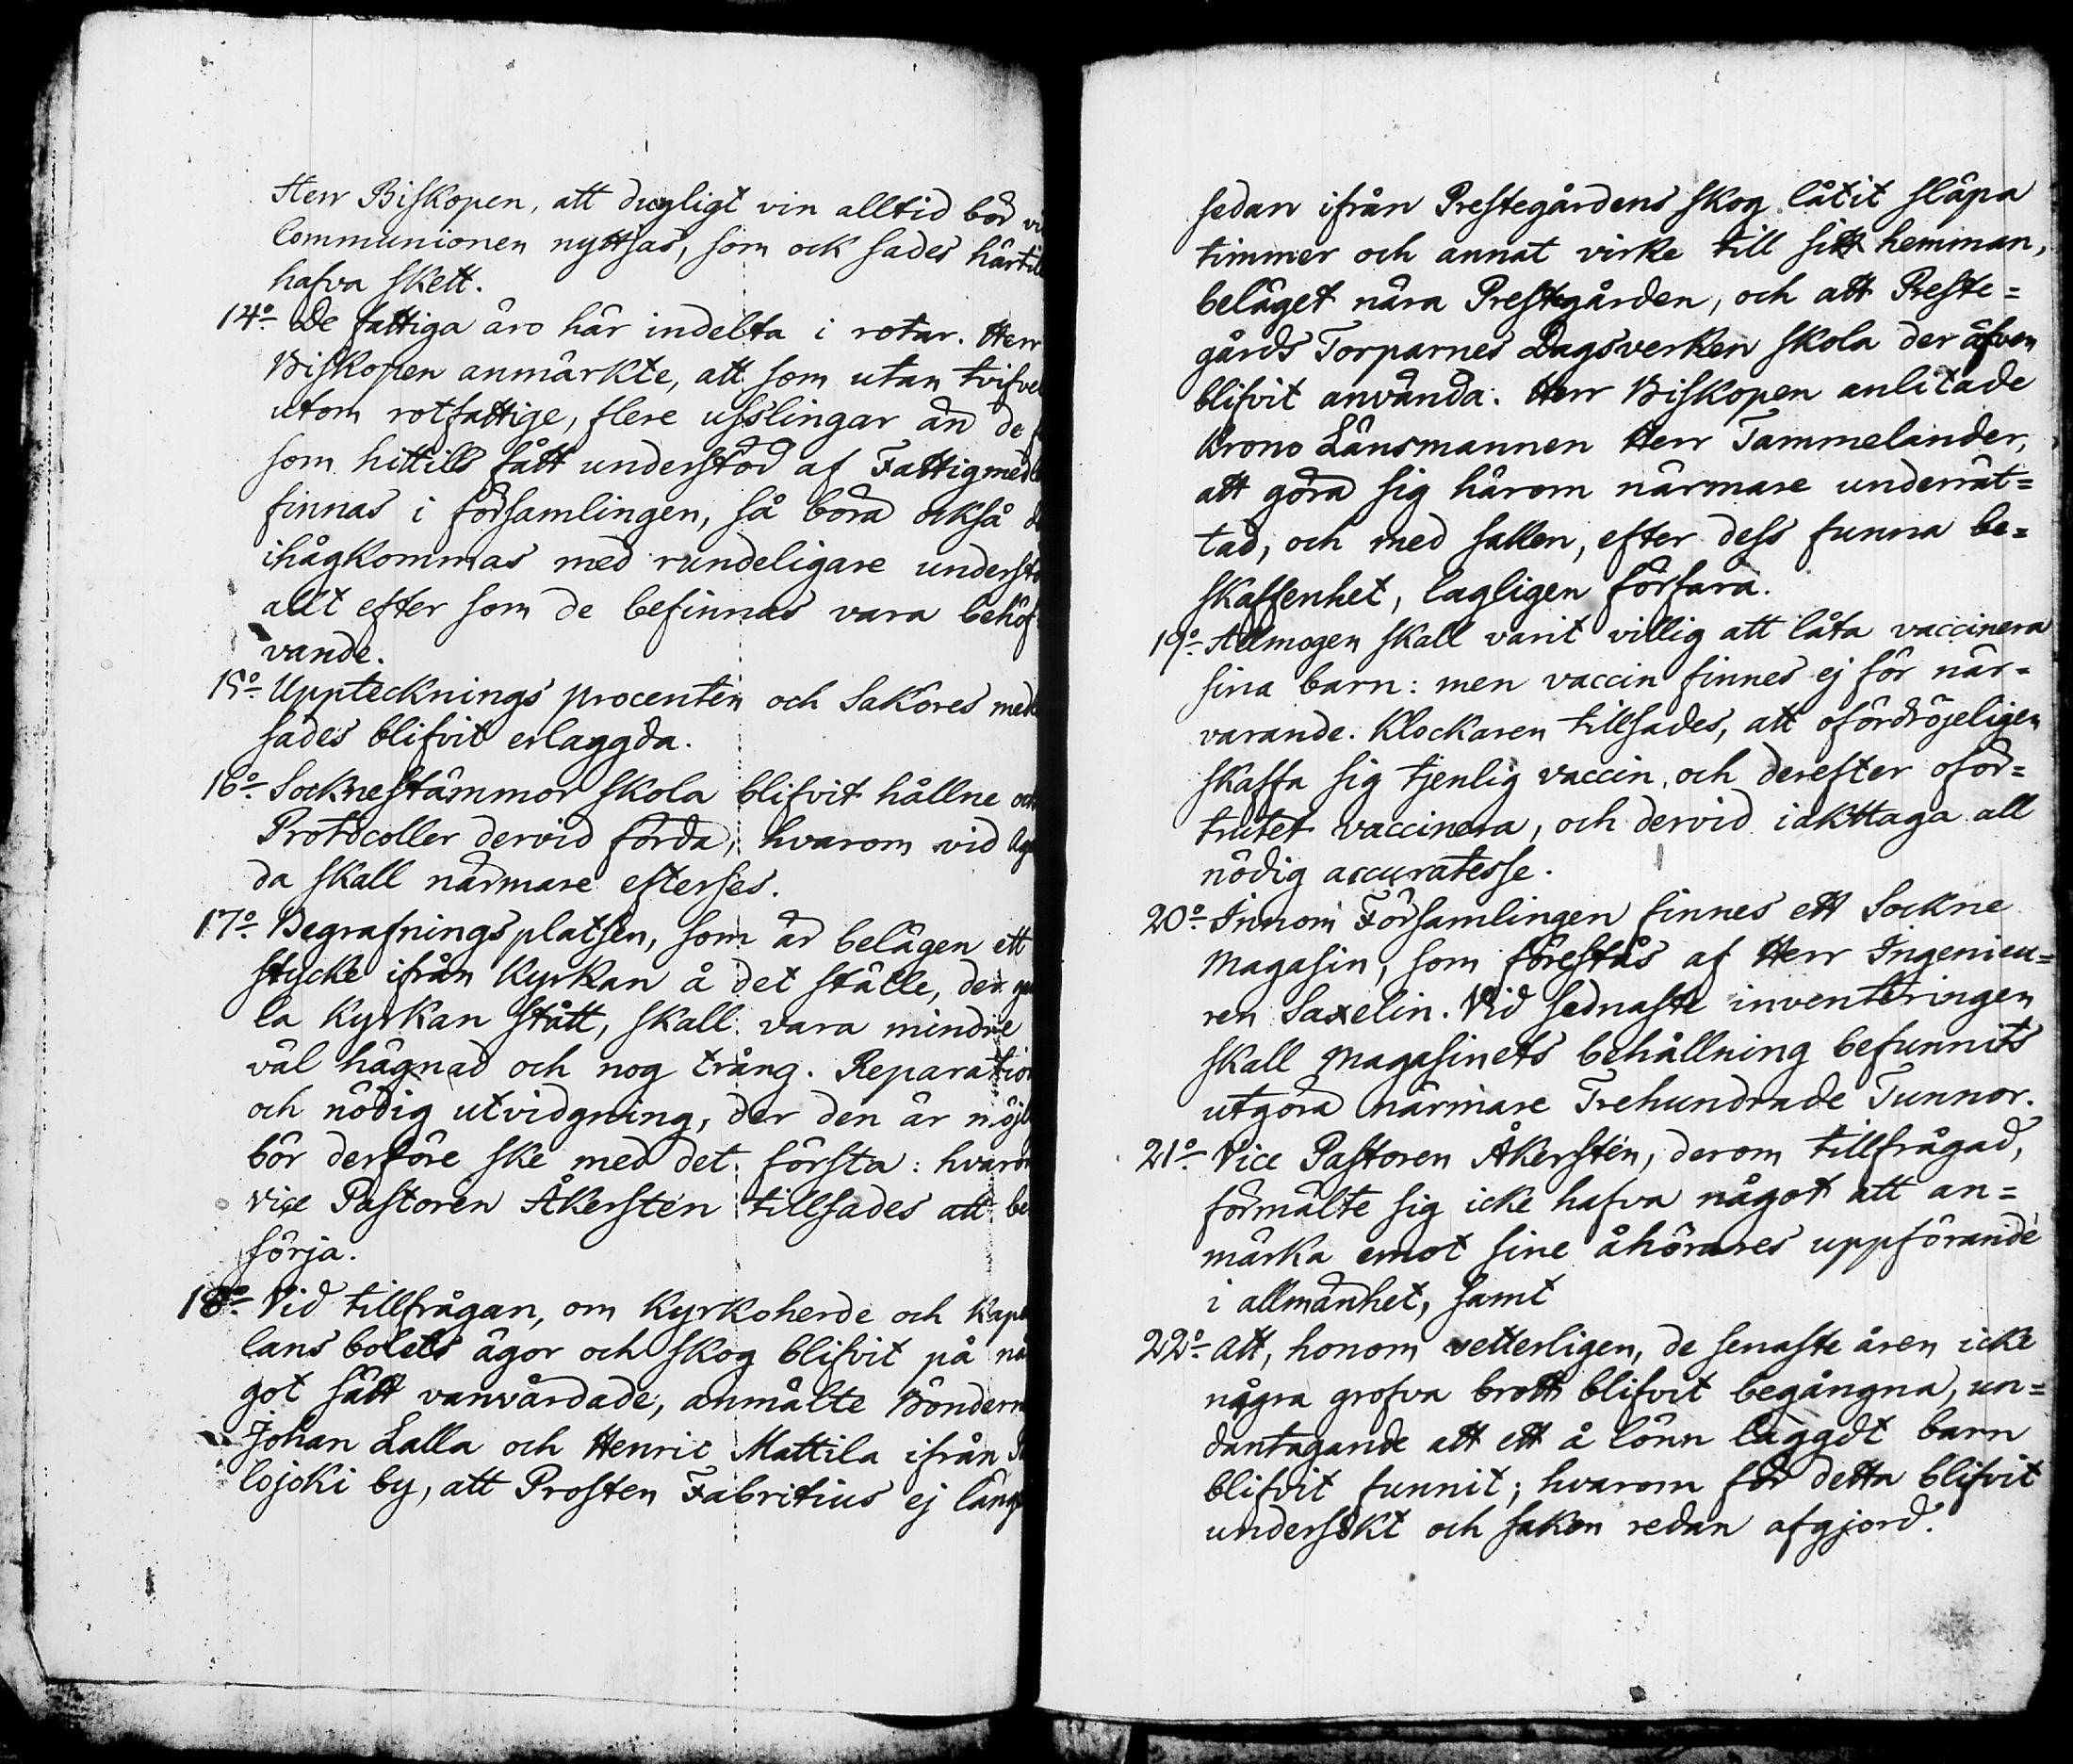 Herr Biskopen, att dugligt vin alltid bör
Communionen nyttjas, som ock sades härtill
hafva skett.
14:o De fattiga äro här indelta i rotar. Herr
Biskopen anmärkte, att som utan tvifvel
utom rotfattige, flere usslingar än de
som hittills fått understöd af Fattigmed
finnas i församlingen, så böra också
ihågkommas med rundeligare underst
allt efter som de befinnas vara behöf
vande.
15:o Uppteckningsprocenten och Saköres med
sades blifvit erlaggda.
16:o Socknestämmor skola blifvit hållne och
Protocoller dervid förda, hvarom vid
da skall närmare efterses.
17:o Begrafningsplatsen, som är belägen ett
stycke ifrån Kyrkan å det ställe, der ga
la Kyrkan stått, skall vara mindre
väl hägnad och nog trång. Reparation
och nödig utvidgning, der den är möjl
bör derföre ske med det första: hvarom
Vice Pastoren Åkerstén tillsades att be
sörja.
18:o Vid tillfrågan, om Kyrkoherde och Kapel
lans bolets ägor och skog blifvit på nå
got sätt vanvårdade, anmälte Bönderne
Johan Lalla och Henric Mattila ifrån
lojoki by, att Prosten Fabritius ej läng
sedan ifrån Prestegårdens skog låtit släpa
timmer och annat virke till sitt hemman,
beläget nära Prestegården, och att Preste=
gårds Torparnes Dagsverken skola der äfven
blifvit använda. Herr Biskopen anlitade
Krono Länsmannen Herr Tammelander,
att göra sig härom närmare underrät=
tad, och med sallen, efter dess funna be=
skaffenhet, lagligen förfara.
19:o Allmogen skall varit villig att låta vaccinera
sina barn: men vaccin finnes ej för när=
varande. Klockaren tillsades, att ofördröjeligen
skaffa sig tjenlig vaccin, och derefter oför=
trutet vaccinera, och dervid iakttaga all
nödig accuratesse.
20:o Innom Församlingen finnes ett Sockne
Magasin, som förestås af Herr Ingenieu=
ren Saxelin. Vid sednaste inventeringen
skall Magasinets behållning befunnits
utgöra närmare Trehundrade Tunnor.
21:o Vice Pastoren Åkerstén, derom tillfrågad,
förmälte sig icke hafva något att an=
märka emot sine åhörares uppförande
i allmänhet, samt
22:o att, honom vetterligen, de senaste åren icke
några grofva brott blifvit begångna, un=
dantagande att ett å lönn laggdt barn
blifvit funnit; hvarom för detta blifvit
undersökt och saken redan afgjord.